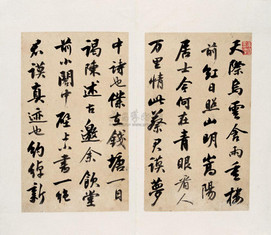 天際烏雲含雨重樓
前紅日照山明嵩陽
居士今何在青眼看人
萬里情此蔡君謨夢
中詩也僕在錢塘一日
謁陳述古邀余飲堂
前小閣中壁上小書一絕
君謨真迹也約綽新